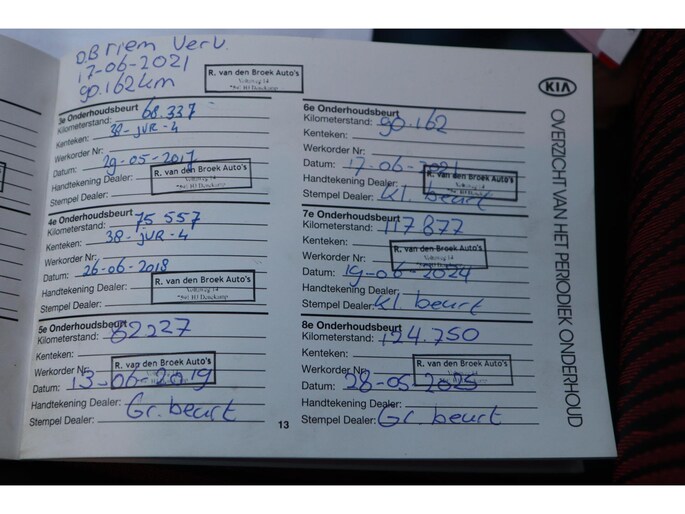 D.B riem Verv.
17-06-2021
90.162km
R. van den Broek Auto's
3e Onderhoudsbeurt
Kilometerstand: 68.337
Kenteken: 38-JVR-4
Werkorder Nr:
Datum: 29-05-2017
Handtekening Dealer:
R. van den Broek Auto's
Stempel Dealer:
4e Onderhoudsbeurt
Kilometerstand: 75 557
Kenteken: 38-JVR-4
Werkorder Nr:
Datum: 26-06-2018
Handtekening Dealer:
R. van den Broek Auto's
Stempel Dealer:
5e Onderhoudsbeurt
Kilometerstand: 82227
Kenteken:
Werkorder Nr:
R. van den Broek Auto's
Datum: 13-06-2019
Handtekening Dealer: Gr. beurt
Stempel Dealer:
13
6e Onderhoudsbeurt
Kilometerstand: 90.162
Kenteken:
Werkorder Nr:
Datum: 17-06-2021
Handtekening Dealer:
R. van den Broek Auto's
Stempel Dealer: Kl. beurt
7e Onderhoudsbeurt
Kilometerstand: 117877
Kenteken:
R. van den Broek Auto's
Werkorder Nr:
Datum: 19-06-2024
Handtekening Dealer:
Stempel Dealer: Kl. beurt
8e Onderhoudsbeurt
Kilometerstand: 124.750
Kenteken:
R. van den Broek Auto's
Werkorder Nr:
Datum: 28-05-2025
Handtekening Dealer:
Stempel Dealer: Gr. beurt
KIA
OVERZICHT VAN HET PERIODIEK ONDERHOUD